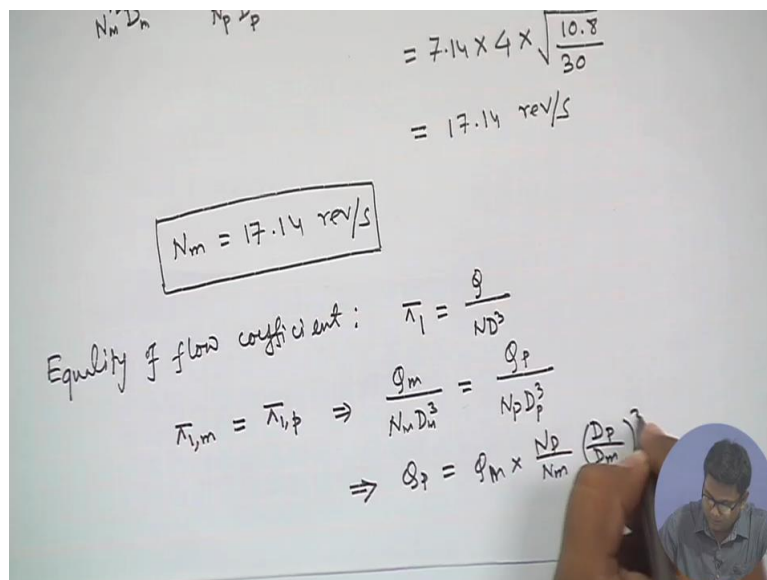 NmDm NpDp
= 7.14 × 4 × √(10.8/30)
= 17.14 rev/s
Nm = 17.14 rev/s
Equality of flow coefficient : π₁ = Q/ND³
π₁,m = π₁,p ⇒ Qm/NmDm³ = Qp/NpDp³
⇒ Qp = Qm × Np/Nm (Dp/Dm)³